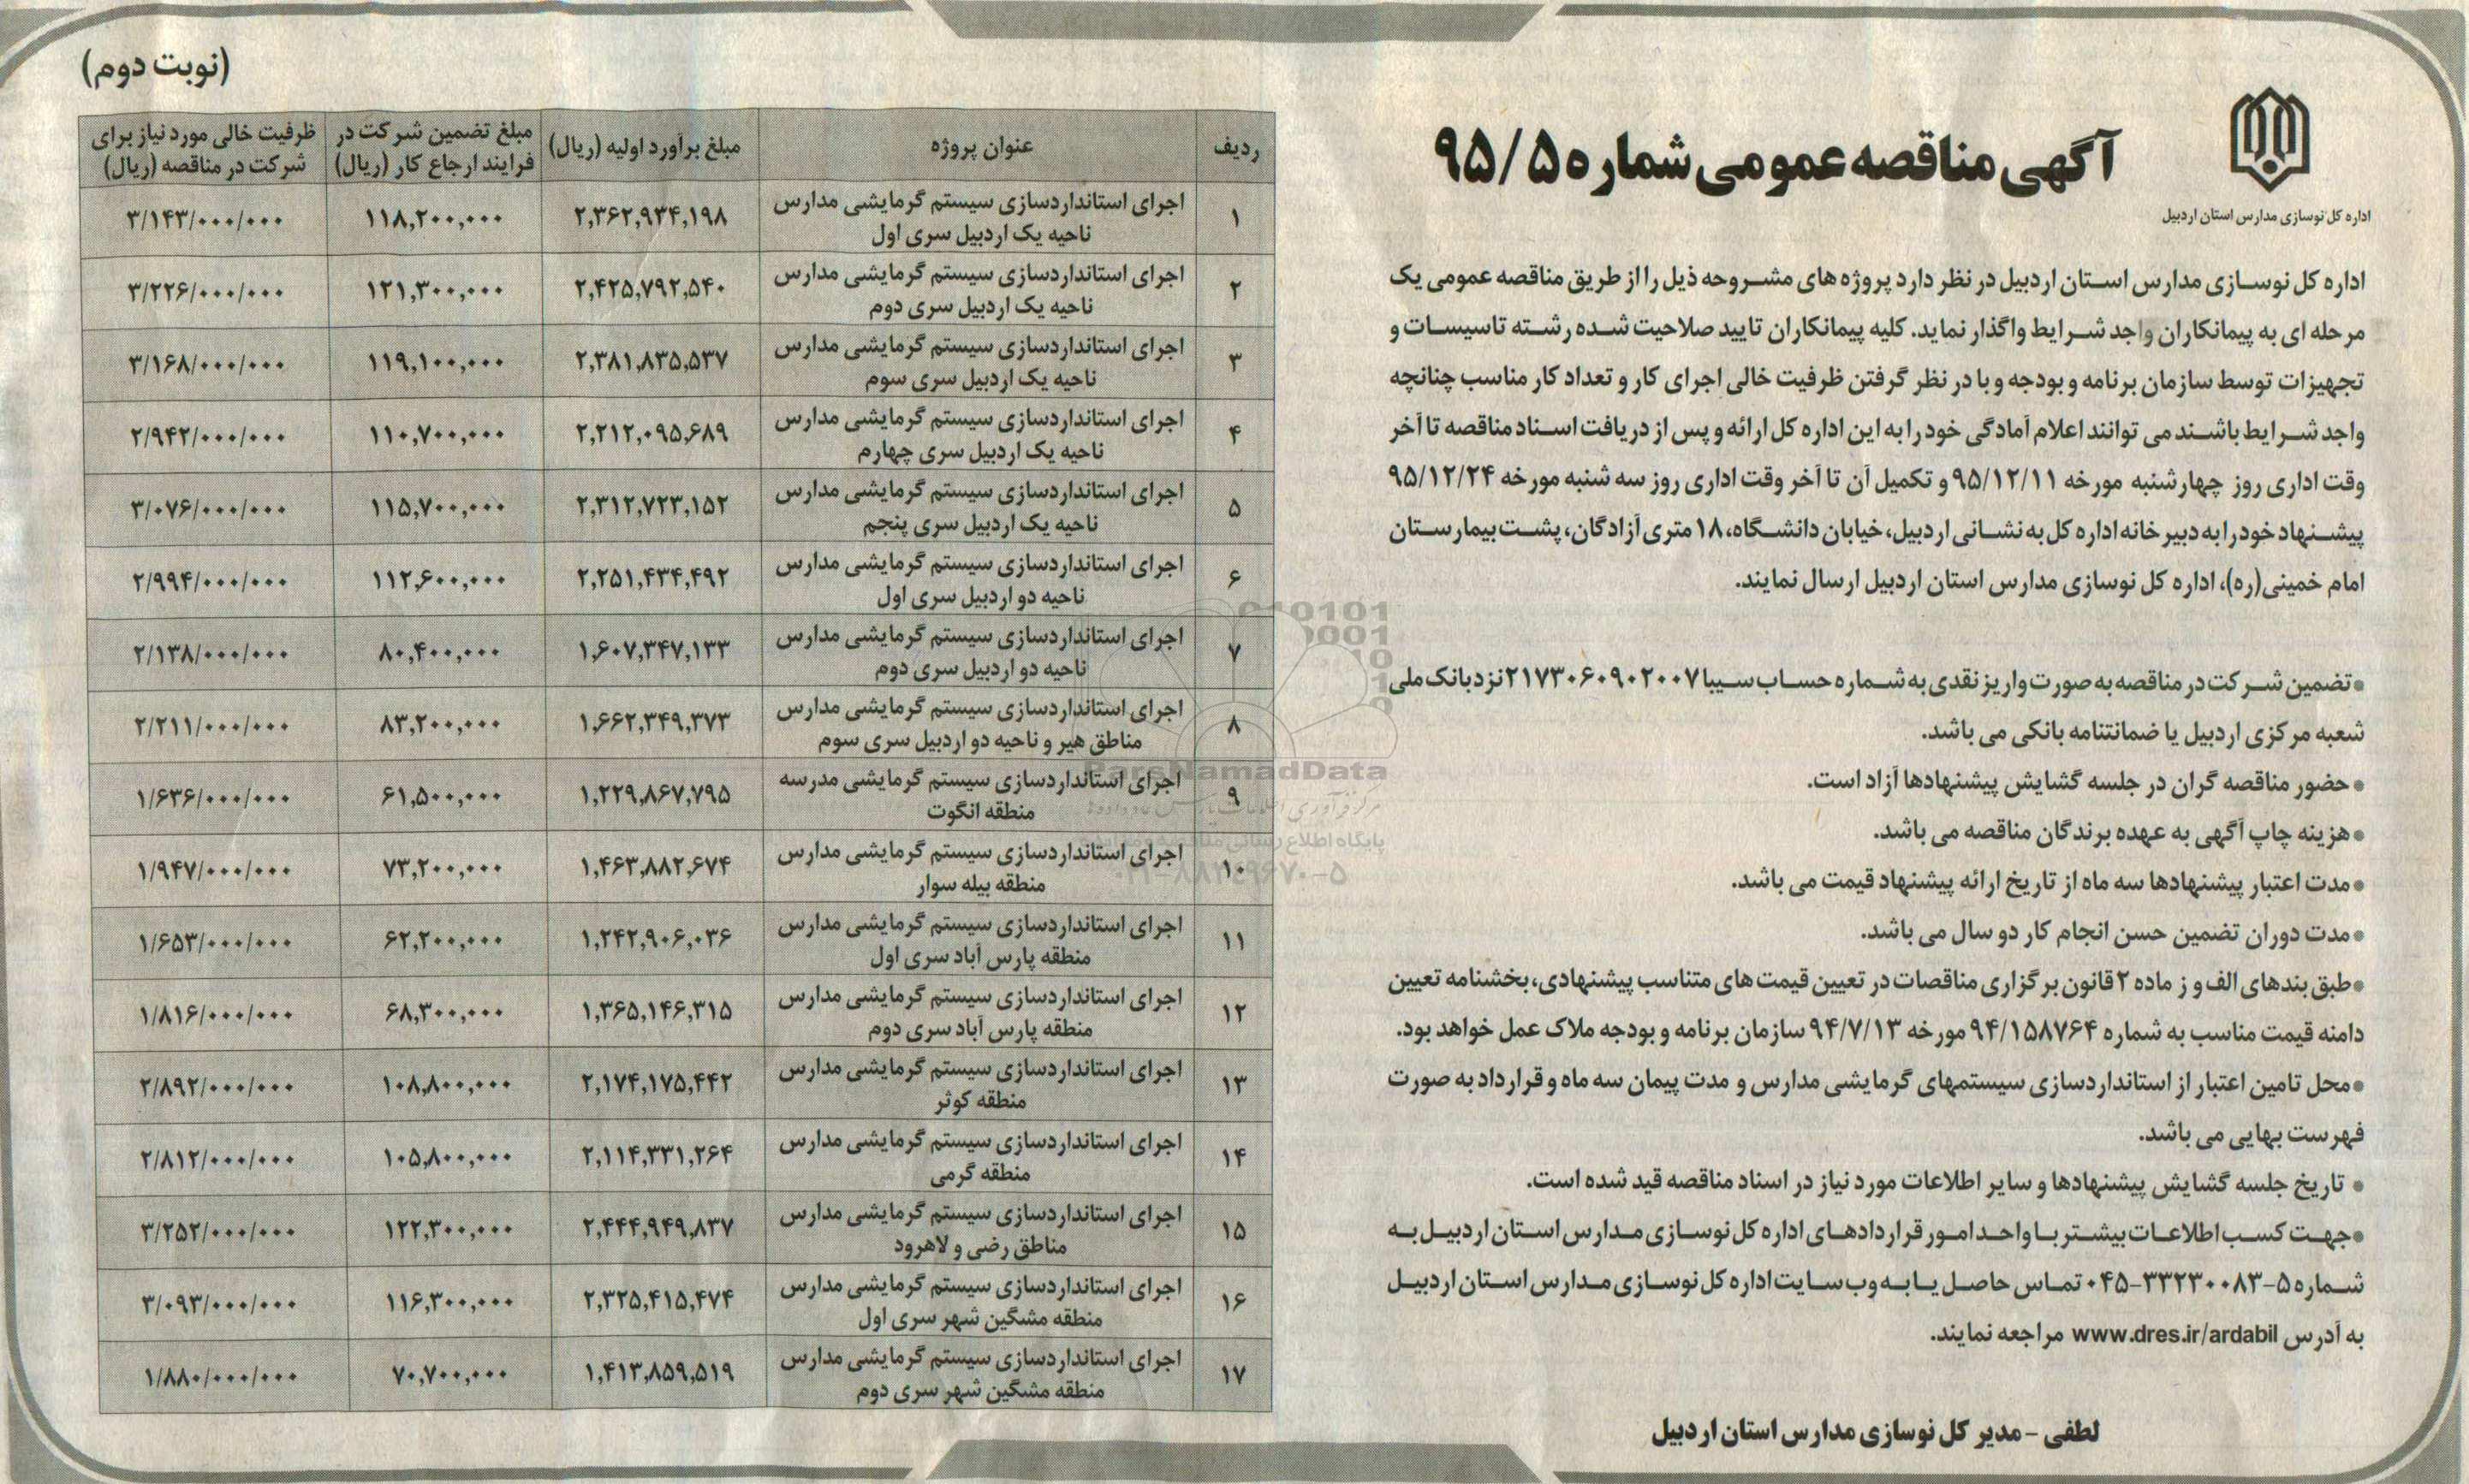 (نوبت دوم)
آگهی مناقصه عمومی شماره ۹۵/۵
اداره کل نوسازی مدارس استان اردبیل
اداره کل نوسازی مدارس استان اردبیل در نظر دارد پروژه های مشروحه ذیل را از طریق مناقصه عمومی یک
مرحله ای به پیمانکاران واجد شرایط واگذار نماید. کلیه پیمانکاران تایید صلاحیت شده رشته تاسیسات و
تجهیزات توسط سازمان برنامه و بودجه و با در نظر گرفتن ظرفیت خالی اجرای کار و تعداد کار مناسب چنانچه
واجد شرایط باشند می توانند اعلام آمادگی خود را به این اداره کل ارائه و پس از دریافت اسناد مناقصه تا آخر
وقت اداری روز چهارشنبه مورخه ۹۵/۱۲/۱۱ و تکمیل آن تا آخر وقت اداری روز سه شنبه مورخه ۹۵/۱۲/۲۴
پیشنهاد خود را به دبیرخانه اداره کل به نشانی اردبیل، خیابان دانشگاه، ۱۸ متری آزادگان، پشت بیمارستان
امام خمینی(ره)، اداره کل نوسازی مدارس استان اردبیل ارسال نمایند.
● تضمین شرکت در مناقصه به صورت واریز نقدی به شماره حساب سیبا ۲۱۷۳۰۶۰۹۰۲۰۰۷ نزد بانک ملی
شعبه مرکزی اردبیل یا ضمانتنامه بانکی می باشد.
● حضور مناقصه گران در جلسه گشایش پیشنهادها آزاد است.
● هزینه چاپ آگهی به عهده برندگان مناقصه می باشد.
● مدت اعتبار پیشنهادها سه ماه از تاریخ ارائه پیشنهاد قیمت می باشد.
● مدت دوران تضمین حسن انجام کار دو سال می باشد.
● طبق بندهای الف و ز ماده ۲ قانون برگزاری مناقصات در تعیین قیمت های متناسب پیشنهادی، بخشنامه تعیین
دامنه قیمت مناسب به شماره ۹۴/۱۵۸۷۶۴ مورخه ۹۴/۷/۱۳ سازمان برنامه و بودجه ملاک عمل خواهد بود.
● محل تامین اعتبار از استانداردسازی سیستمهای گرمایشی مدارس و مدت پیمان سه ماه و قرارداد به صورت
فهرست بهایی می باشد.
● تاریخ جلسه گشایش پیشنهادها و سایر اطلاعات مورد نیاز در اسناد مناقصه قید شده است.
● جهت کسب اطلاعات بیشتر با واحد امور قراردادهای اداره کل نوسازی مدارس استان اردبیل به
شماره ۵-۳۳۲۳۰۰۸۳-۰۴۵ تماس حاصل یا به وب سایت اداره کل نوسازی مدارس استان اردبیل
به آدرس www.dres.ir/ardabil مراجعه نمایند.
لطفی - مدیر کل نوسازی مدارس استان اردبیل
ردیف عنوان پروژه مبلغ برآورد اولیه (ریال) مبلغ تضمین شرکت در فرایند ارجاع کار (ریال) ظرفیت خالی مورد نیاز برای شرکت در مناقصه (ریال)
۱ اجرای استانداردسازی سیستم گرمایشی مدارس ناحیه یک اردبیل سری اول ۲,۳۶۲,۹۳۴,۱۹۸ ۱۱۸,۲۰۰,۰۰۰ ۳/۱۴۳/۰۰۰/۰۰۰
۲ اجرای استانداردسازی سیستم گرمایشی مدارس ناحیه یک اردبیل سری دوم ۲,۴۲۵,۷۹۲,۵۴۰ ۱۲۱,۳۰۰,۰۰۰ ۳/۲۲۶/۰۰۰/۰۰۰
۳ اجرای استانداردسازی سیستم گرمایشی مدارس ناحیه یک اردبیل سری سوم ۲,۳۸۱,۸۳۵,۵۳۷ ۱۱۹,۱۰۰,۰۰۰ ۳/۱۶۸/۰۰۰/۰۰۰
۴ اجرای استانداردسازی سیستم گرمایشی مدارس ناحیه یک اردبیل سری چهارم ۲,۲۱۲,۰۹۵,۶۸۹ ۱۱۰,۷۰۰,۰۰۰ ۲/۹۴۲/۰۰۰/۰۰۰
۵ اجرای استانداردسازی سیستم گرمایشی مدارس ناحیه یک اردبیل سری پنجم ۲,۳۱۲,۷۲۳,۱۵۲ ۱۱۵,۷۰۰,۰۰۰ ۳/۰۷۶/۰۰۰/۰۰۰
۶ اجرای استانداردسازی سیستم گرمایشی مدارس ناحیه دو اردبیل سری اول ۲,۲۵۱,۴۳۴,۴۹۲ ۱۱۲,۶۰۰,۰۰۰ ۲/۹۹۴/۰۰۰/۰۰۰
۷ اجرای استانداردسازی سیستم گرمایشی مدارس ناحیه دو اردبیل سری دوم ۱,۶۰۷,۳۴۷,۱۳۳ ۸۰,۴۰۰,۰۰۰ ۲/۱۳۸/۰۰۰/۰۰۰
۸ اجرای استانداردسازی سیستم گرمایشی مدارس مناطق هیر و ناحیه دو اردبیل سری سوم ۱,۶۶۲,۳۴۹,۳۷۳ ۸۳,۲۰۰,۰۰۰ ۲/۲۱۱/۰۰۰/۰۰۰
۹ اجرای استانداردسازی سیستم گرمایشی مدرسه منطقه انگوت ۱,۲۲۹,۸۶۷,۷۹۵ ۶۱,۵۰۰,۰۰۰ ۱/۶۳۶/۰۰۰/۰۰۰
۱۰ اجرای استانداردسازی سیستم گرمایشی مدارس منطقه بیله سوار ۱,۴۶۳,۸۸۲,۶۷۴ ۷۳,۲۰۰,۰۰۰ ۱/۹۴۷/۰۰۰/۰۰۰
۱۱ اجرای استانداردسازی سیستم گرمایشی مدارس منطقه پارس آباد سری اول ۱,۲۴۲,۹۰۶,۰۳۶ ۶۲,۲۰۰,۰۰۰ ۱/۶۵۳/۰۰۰/۰۰۰
۱۲ اجرای استانداردسازی سیستم گرمایشی مدارس منطقه پارس آباد سری دوم ۱,۳۶۵,۱۴۶,۳۱۵ ۶۸,۳۰۰,۰۰۰ ۱/۸۱۶/۰۰۰/۰۰۰
۱۳ اجرای استانداردسازی سیستم گرمایشی مدارس منطقه کوثر ۲,۱۷۴,۱۷۵,۴۴۲ ۱۰۸,۸۰۰,۰۰۰ ۲/۸۹۲/۰۰۰/۰۰۰
۱۴ اجرای استانداردسازی سیستم گرمایشی مدارس منطقه گرمی ۲,۱۱۴,۳۳۱,۲۶۴ ۱۰۵,۸۰۰,۰۰۰ ۲/۸۱۲/۰۰۰/۰۰۰
۱۵ اجرای استانداردسازی سیستم گرمایشی مدارس مناطق رضی و لاهرود ۲,۴۴۴,۹۴۹,۸۳۷ ۱۲۲,۳۰۰,۰۰۰ ۳/۲۵۲/۰۰۰/۰۰۰
۱۶ اجرای استانداردسازی سیستم گرمایشی مدارس منطقه مشگین شهر سری اول ۲,۳۲۵,۴۱۵,۴۷۴ ۱۱۶,۳۰۰,۰۰۰ ۳/۰۹۳/۰۰۰/۰۰۰
۱۷ اجرای استانداردسازی سیستم گرمایشی مدارس منطقه مشگین شهر سری دوم ۱,۴۱۳,۸۵۹,۵۱۹ ۷۰,۷۰۰,۰۰۰ ۱/۸۸۰/۰۰۰/۰۰۰
ParsNamadData